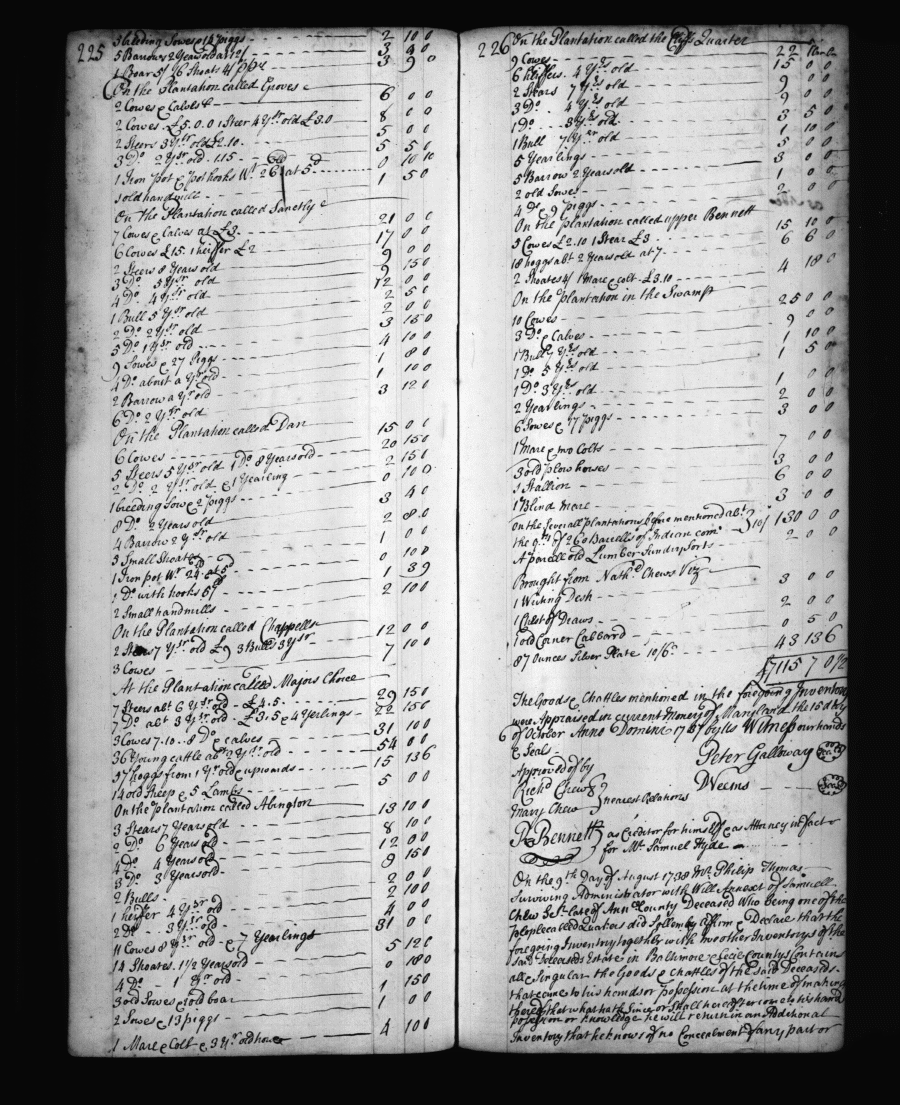 225
5 breeding Sowes & 14 piggs 2 10 0
5 Barrows 2 Years old at 12/ 3 0 0
1 Boar 5/ 16 Shoats 4/ 3 9 0
On the Plantation called Groves
2 Cowes & Calves 6 0 0
2 Cowes £5.0.0 1 Steer 4 Yrs old £3.0 8 0 0
2 Steers 3 Yrs old £2.10 5 0 0
3 Do 2 Yrs old 1.15 5 5 0
1 Iron pot & pothooks Wt 26 at 5d 0 10 10
1 old handmill 1 5 0
On the Plantation called
7 Cowes & Calves at £3 21 0 0
6 Cowes £15. 1 heiffer £2 17 0 0
2 Steers 8 Years old 9 0 0
3 Do 5 Yrs old 9 15 0
4 Do 4 Yrs old 12 0 0
1 Bull 5 Yrs old 2 5 0
2 Do 2 Yrs old 2 0 0
5 Do 1 Yrs old 3 15 0
9 Sowes & 27 Piggs 4 10 0
4 Do about a Yr old 1 8 0
2 Barrow a Yr old 1 10 0
6 Do 2 Yrs old 3 12 0
On the Plantation called Dan
6 Cowes 15 0 0
5 Steers 5 Yrs old 1 Do 8 Years old 20 15 0
2 Do 2 Yrs old & 1 Yearling 2 15 0
1 breeding Sow & 2 piggs 0 10 0
8 Do 2 Years old 3 4 0
4 Barrow 2 Yrs old 2 8 0
3 Small Shoats 1 0 0
1 Iron pot Wt 24 at 5d 0 10 0
1 Do with hooks 1 3 9
2 Small handmills 2 10 0
On the Plantation called Chappells
2 7 Yrs old £9 3 Bulls 3 Yrs 12 0 0
3 Cowes 7 10 0
At the Plantation called Majors Choice
7 Steers abt 6 Yrs old £4.5 29 15 0
7 Do abt 3 Yrs old £3.5 & 4 Yerlings 22 15 0
3 Cowes 7.10 8 Do & calves 31 10 0
36 Young cattle abt 2 Yrs old 54 0 0
37 hoggs from 1 Yrs old & upwards 15 13 6
14 old Sheep & 5 Lambs 5 0 0
On the plantation called Abington
3 Stears 7 Years old 13 10 0
2 Do 6 Years old 8 10 0
4 Do 4 Years old 12 0 0
3 Do 3 Years old 8 15 0
2 Bulls 2 0 0
1 heifer 4 Yrs old 2 10 0
2 Do 3 Yrs old 4 0 0
11 Cowes 8 Yrs old & 7 Yearlings 31 0 0
14 Shoates 1 1/2 Years old 5 12 0
4 Do 1 Yrs old 0 18 0
3 old Sowes & 1 old boar 1 15 0
2 Sowes & 13 piggs 1 0 0
1 Mare & Colt & 3 Yrs old horse 4 10 0
226 On the Plantation called the Cliffs Quarter
9 Cowes 22 10 0
6 Heiffers 4 Yrs old 15 0 0
2 Stears 7 Yrs old 9 0 0
3 Do 4 Yrs old 9 0 0
1 Do 3 Yrs old 3 5 0
1 Bull 7 Yrs old 1 10 0
5 Yearlings 3 0 0
5 Barrow 2 Years old 3 0 0
2 old Sowes 1 0 0
4 Do & 9 piggs 2 0 0
On the plantation called upper Bennett
5 Cowes £2.10 1 Stear £3 15 10 0
18 hoggs abt 2 Years old at 7 6 6 0
2 Shoates 4/ 1 Mare & colt £3.10 4 18 0
On the plantation in the Swamp
10 Cowes 25 0 0
3 Do & Calves 9 0 0
1 Bull 7 Yrs old 1 10 0
1 Do 5 Yrs old 1 5 0
1 Do 3 Yrs old 1 0 0
2 Yearlings 2 0 0
6 Sowes & 17 piggs 3 0 0
1 Mare & two Colts 7 0 0
3 old plow horses 3 0 0
1 Stallion 6 0 0
1 Blind Mare 3 0 0
On the severall plantations before mentioned abt
the qty of 260 Barells of Indian corn 10/ 130 0 0
A parcell old Lumber Sundry Sorts 2 0 0
Brought from Nathl Chews Viz
1 Writing Desk 3 0 0
1 Chest of Draws 2 0 0
1 old Corner Cubbard 0 5 0
87 Ounces Silver Plate 10/ 43 13 6
£7115 7 0 1/2
The Goods & Chattles mentioned in the foregoing Inventory
were Appraised in current Money of Maryland the 15th day
of October Anno Domini 1737 by us Witness our hands
& Seal
Peter Galloway Seal
Approved of by
Weems Seal
Richd Chew
Mary Chew nearest Relations
R Bennett as Creditor for himself & as Attorney in fact
for Mr Samuel Hyde
On the 9th Day of August 1738 Mr Philip Thomas
Surviving Administrator with Will Annext of Samuell
Chew late of Ann County Deceased Who being one of the
people called Quakers did Solemnly affirm & Declare that the
foregoing Inventory together with two other Inventorys of the
said Deceaseds Estate in Baltimore & Cecil Countys Contains
all & Singular the Goods & Chattles of the said Deceaseds
that came to his hands or possession at the time of making
thereof that what hath since or shall hereafter come to his hands
possession or knowledge he will return in an Additional
Inventory that he knows of no Concealment of any part or